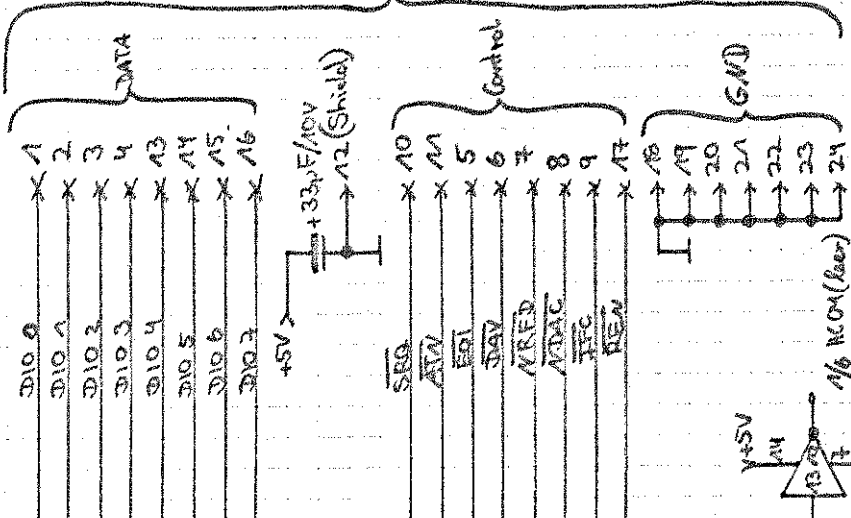 DATA
1
2
3
4
13
14
15
16
DIO 0
DIO 1
DIO 2
DIO 3
DIO 4
DIO 5
DIO 6
DIO 7
+5V
+33µF/10V
12 (Shield)
Control
10
11
5
6
7
8
9
17
SRQ
ATN
EOI
DAV
NRFD
NDAC
IFC
REN
GND
18
19
20
21
22
23
24
+5V
14
13 12
7
1/6 HC04 (leer)